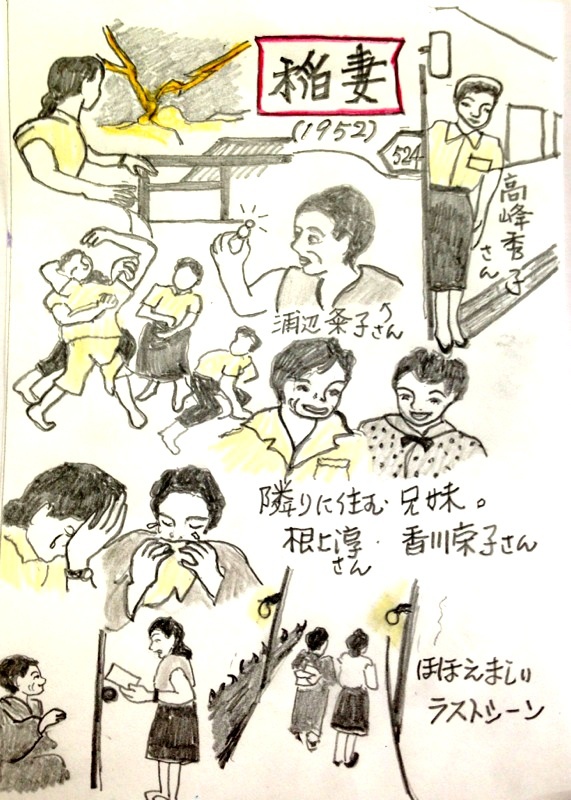 稲妻
(1952)
524
高峰秀子
さん
浦辺粂子さん
隣りに住む兄妹。
根上淳・香川京子さん
さん
ほほえましい
ラストシーン